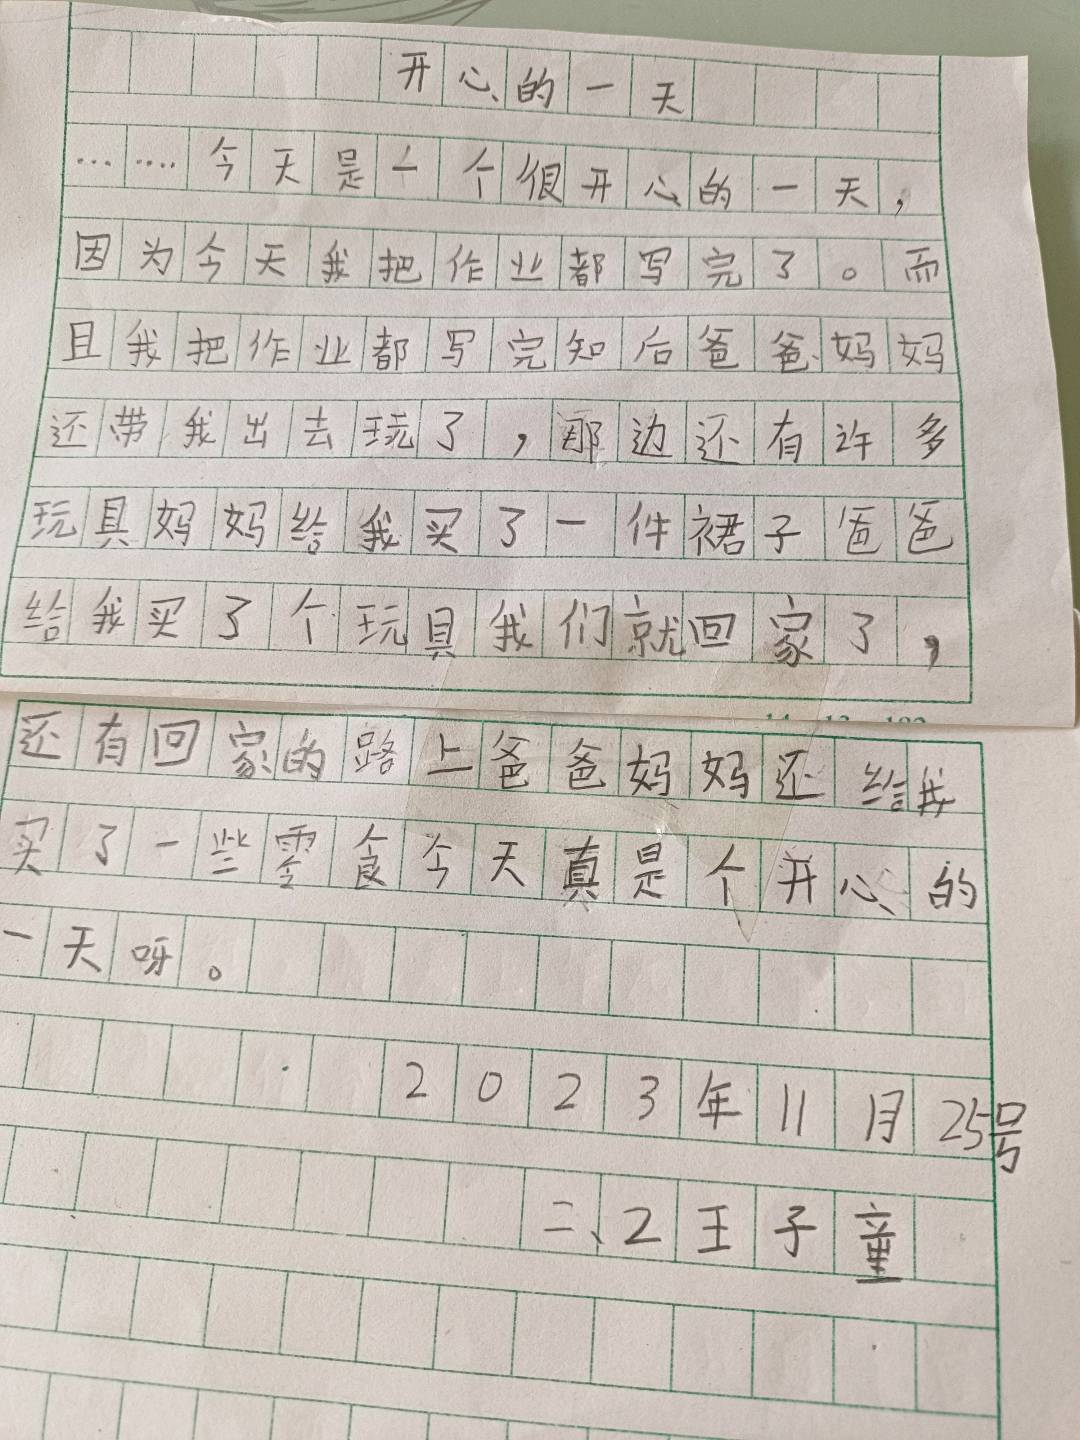 开心的一天
……今天是一个很开心的一天，
因为今天我把作业都写完了。而
且我把作业都写完知后爸爸妈妈
还带我出去玩了，那边还有许多
玩具妈妈给我买了一件裙子爸爸
给我买了个玩具我们就回家了，
还有回家的路上爸爸妈妈还给我
买了一些零食今天真是个开心的
一天呀。
2023年11月25号
二、2王子童